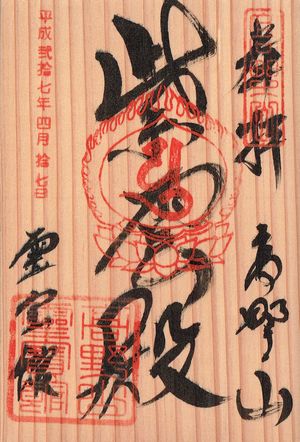 奉拝
高野山
紫雲殿
霊宝館
平成貳拾七年四月拾七日